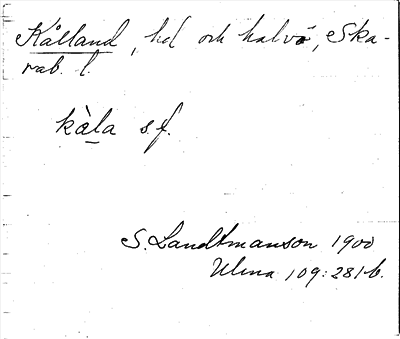 Kålland, hd och halvö, Ska-
rab. l.
kàla s.f.
S. Landtmanson 1900
Ulma 109:281 b.